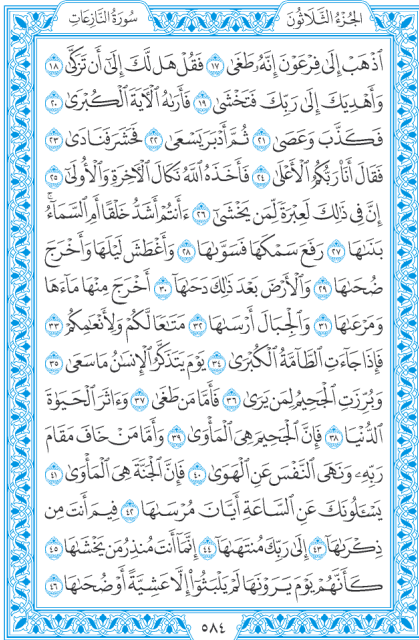 سُورَةُ النَّازِعَاتِ الجُزْءُ الثَّلَاثُونَ
ٱذْهَبْ إِلَىٰ فِرْعَوْنَ إِنَّهُۥ طَغَىٰ ١٧ فَقُلْ هَل لَّكَ إِلَىٰٓ أَن تَزَكَّىٰ ١٨
وَأَهْدِيَكَ إِلَىٰ رَبِّكَ فَتَخْشَىٰ ١٩ فَأَرَىٰهُ ٱلْأٓيَةَ ٱلْكُبْرَىٰ ٢٠
فَكَذَّبَ وَعَصَىٰ ٢١ ثُمَّ أَدْبَرَ يَسْعَىٰ ٢٢ فَحَشَرَ فَنَادَىٰ ٢٣
فَقَالَ أَنَا۠ رَبُّكُمُ ٱلْأَعْلَىٰ ٢٤ فَأَخَذَهُ ٱللَّهُ نَكَالَ ٱلْأٓخِرَةِ وَٱلْأُولَىٰٓ ٢٥
إِنَّ فِى ذَٰلِكَ لَعِبْرَةً لِّمَن يَخْشَىٰٓ ٢٦ ءَأَنتُمْ أَشَدُّ خَلْقًا أَمِ ٱلسَّمَآءُ ۚ
بَنَىٰهَا ٢٧ رَفَعَ سَمْكَهَا فَسَوَّىٰهَا ٢٨ وَأَغْطَشَ لَيْلَهَا وَأَخْرَجَ
ضُحَىٰهَا ٢٩ وَٱلْأَرْضَ بَعْدَ ذَٰلِكَ دَحَىٰهَآ ٣٠ أَخْرَجَ مِنْهَا مَآءَهَا
وَمَرْعَىٰهَا ٣١ وَٱلْجِبَالَ أَرْسَىٰهَا ٣٢ مَتَٰعًا لَّكُمْ وَلِأَنْعَٰمِكُمْ ٣٣
فَإِذَا جَآءَتِ ٱلطَّآمَّةُ ٱلْكُبْرَىٰ ٣٤ يَوْمَ يَتَذَكَّرُ ٱلْإِنسَٰنُ مَا سَعَىٰ ٣٥
وَبُرِّزَتِ ٱلْجَحِيمُ لِمَن يَرَىٰ ٣٦ فَأَمَّا مَن طَغَىٰ ٣٧ وَءَاثَرَ ٱلْحَيَوٰةَ
ٱلدُّنْيَا ٣٨ فَإِنَّ ٱلْجَحِيمَ هِىَ ٱلْمَأْوَىٰ ٣٩ وَأَمَّا مَنْ خَافَ مَقَامَ
رَبِّهِۦ وَنَهَى ٱلنَّفْسَ عَنِ ٱلْهَوَىٰ ٤٠ فَإِنَّ ٱلْجَنَّةَ هِىَ ٱلْمَأْوَىٰ ٤١
يَسْـَٔلُونَكَ عَنِ ٱلسَّاعَةِ أَيَّانَ مُرْسَىٰهَا ٤٢ فِيمَ أَنتَ مِن
ذِكْرَىٰهَآ ٤٣ إِلَىٰ رَبِّكَ مُنتَهَىٰهَآ ٤٤ إِنَّمَآ أَنتَ مُنذِرُ مَن يَخْشَىٰهَا ٤٥
كَأَنَّهُمْ يَوْمَ يَرَوْنَهَا لَمْ يَلْبَثُوٓا۟ إِلَّا عَشِيَّةً أَوْ ضُحَىٰهَا ٤٦
٥٨٤